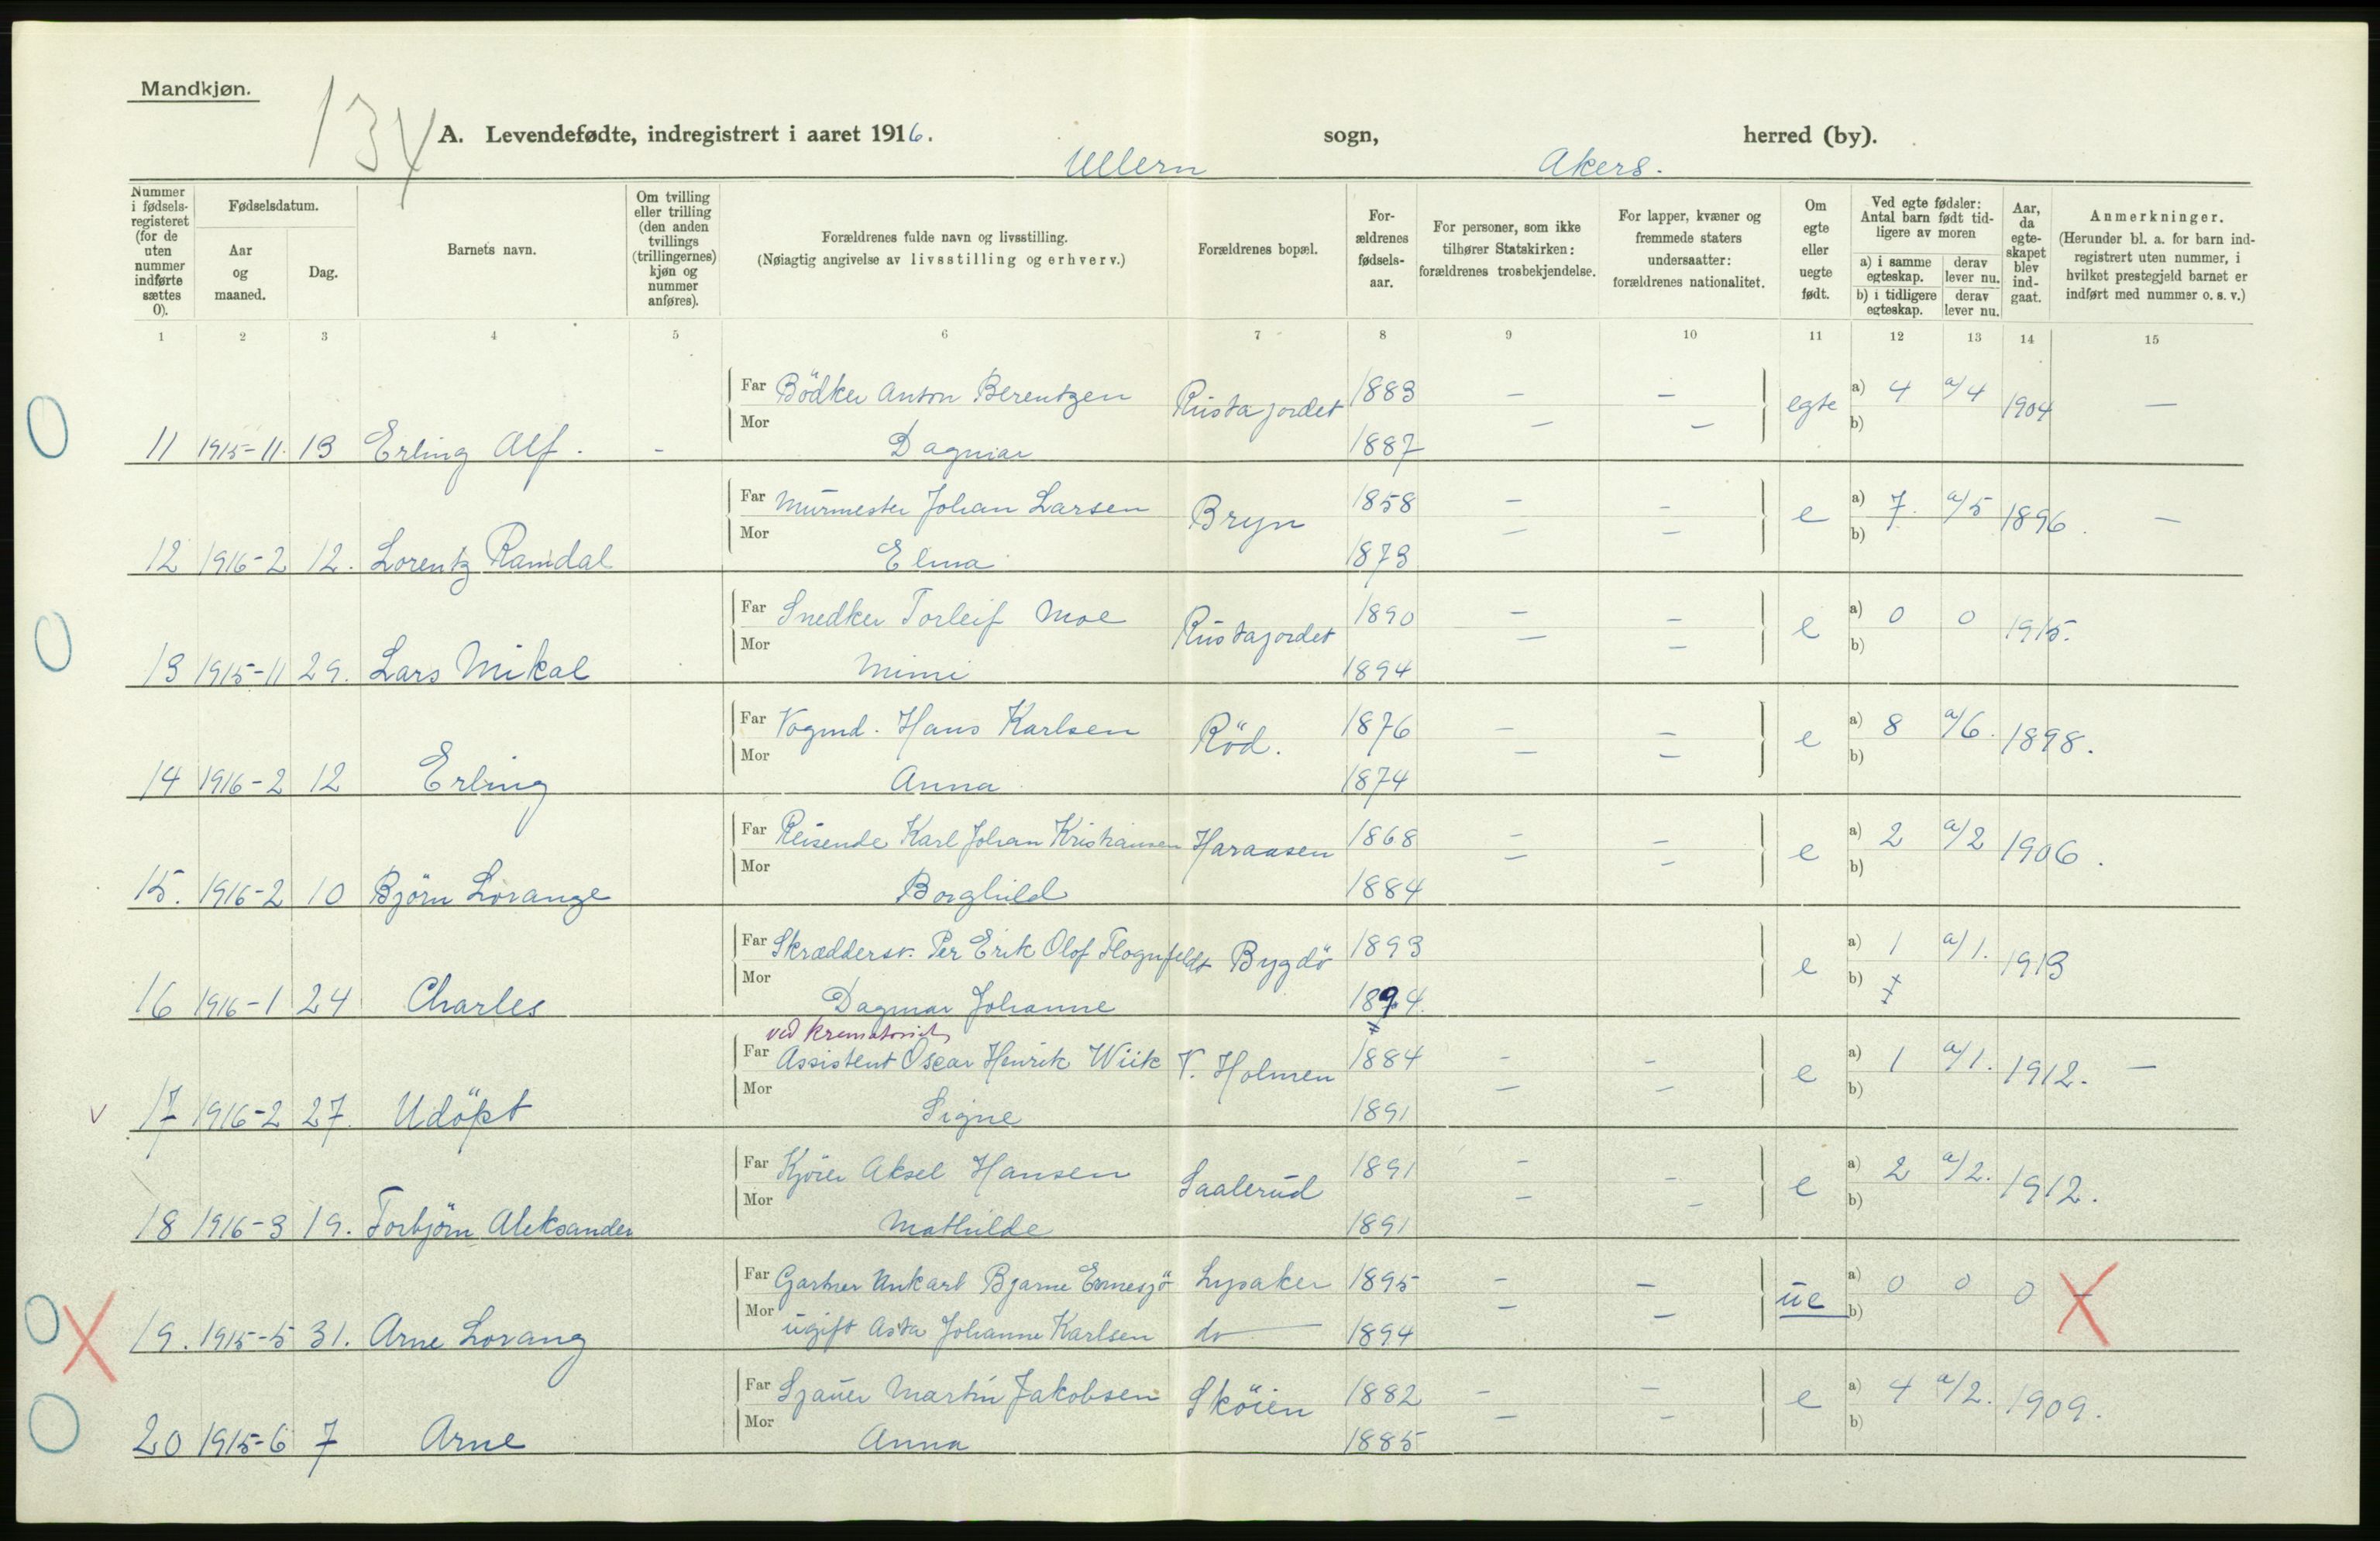 Mandkjøn.
134
A. Levendefødte, indregistrert i aaret 1916. Ullern sogn, Akers. herred (by).
Nummer i fødselsregisteret (for de uten nummer indførte sættes 0).
Fødselsdatum.
Aar og maaned.
Dag.
Barnets navn.
Om tvilling eller trilling (den anden tvillings (trillingernes) kjøn og nummer anføres).
Forældrenes fulde navn og livsstilling.
(Nøiagtig angivelse av livsstilling og erhverv.)
Forældrenes bopæl.
Forældrenes fødselsaar.
For personer, som ikke tilhører Statskirken: forældrenes trosbekjendelse.
For lapper, kvæner og fremmede staters undersaatter: forældrenes nationalitet.
Om egte eller uegte født.
Ved egte fødsler: Antal barn født tidligere av moren
a) i samme egteskap. derav lever nu.
b) i tidligere egteskap. derav lever nu.
Aar, da egteskapet blev indgaat.
Anmerkninger.
(Herunder bl. a. for barn indregistrert uten nummer, i hvilket prestegjeld barnet er indført med nummer o. s. v.)
1 2 3 4 5 6 7 8 9 10 11 12 13 14 15
Far Bödker Anton Berentzen Rustajordet 1883 — — egte a) 4 a/4 1904 —
Mor — — b)
11 1915-11. 13 Erling Alf. - Dagmar 1887
Far Murmester Johan Larsen Bryn 1858 — — e a) 7. a/5 1896. —
Mor — — b)
12 1916-2 12. Lorentz Ramdal Elma 1873
Far Snedker Torleif Moe Rustajordet 1890 — — e a) 0 0 1915.
Mor — — b)
13 1915-11 29. Lars Mikal Mimi 1894
Far Vognmd. Hans Karlsen Röd. 1876 — — e a) 8 a/6. 1898.
Mor — — b)
14 1916-2 12 Erling Anna 1874
Far Reisende Karl Johan Kristiansen Haraasen 1868 — — e a) 2 a/2 1906.
Mor — — b)
15. 1916-2 10 Björn Lorange Borghild 1884
Far Skræddersv. Per Erik Olof Flognfeldt Bygdö 1893 e a) 1 a/1. 1913
Mor b)
16 1916-1 24 Charles Dagmar Johanne 1894.
ved krematoriet
Far Assistent Oscar Henrik Wiik V. Holmen 1884 — — e a) 1 a/1. 1912. —
Mor — — b)
v 17 1916-2 27. Udöpt Signe 1891
Far Kjörer Aksel Hansen Saalerud 1891 — — e a) 2 a/2. 1912.
Mor — — b)
18 1916-3 19. Torbjörn Aleksander Mathilde 1891
Far Gartner Unkarl Bjarne Ennesjö Lysaker 1895 — — ue a) 0 0 0 —
Mor — — b)
19. 1915-5 31. Arne Lorang ugift Asta Johanne Karlsen do 1894
Far Sjauer Martin Jakobsen Sköien 1882 — — e a) 4 a/2. 1909.
Mor — — b)
20 1915-6 7 Arne Anna 1885